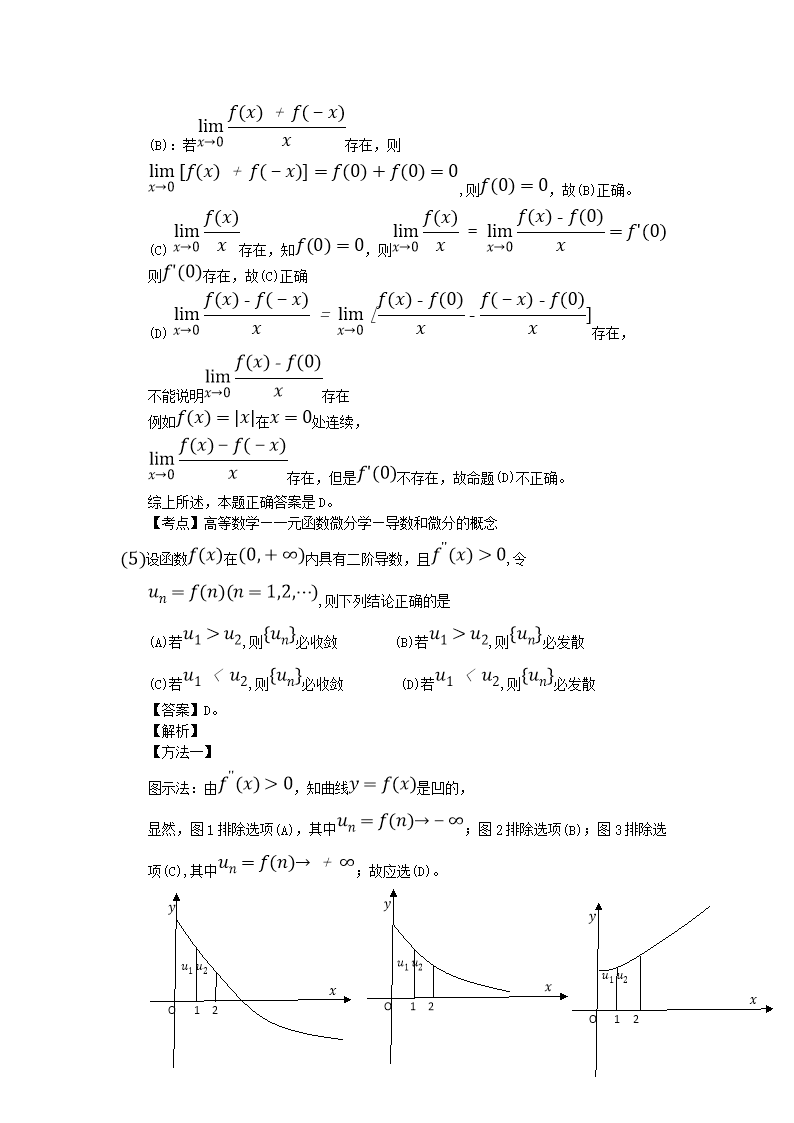 (B):若lim x→0 f(x) + f(−x) / x 存在,则
lim x→0 [f(x) + f(−x)] = f(0) + f(0) = 0,则f(0) = 0,故(B)正确。
(C) lim x→0 f(x)/x 存在,知f(0) = 0,则lim x→0 f(x)/x = lim x→0 f(x) - f(0) / x = f'(0)
则f'(0)存在,故(C)正确
(D) lim x→0 f(x) - f(−x) / x = lim x→0 [f(x) - f(0) / x - f(−x) - f(0) / x]存在,
不能说明lim x→0 f(x) - f(0) / x 存在
例如f(x) = |x|在x = 0处连续,
lim x→0 f(x) − f(−x) / x 存在,但是f'(0)不存在,故命题(D)不正确。
综上所述,本题正确答案是D。
【考点】高等数学—一元函数微分学—导数和微分的概念
(5)设函数f(x)在(0, + ∞)内具有二阶导数,且f''(x) > 0,令
uₙ = f(n)(n = 1,2,⋯),则下列结论正确的是
(A)若u₁ > u₂,则{uₙ}必收敛 (B)若u₁ > u₂,则{uₙ}必发散
(C)若u₁ < u₂,则{uₙ}必收敛 (D)若u₁ < u₂,则{uₙ}必发散
【答案】D。
【解析】
【方法一】
图示法:由f''(x) > 0,知曲线y = f(x)是凹的,
显然,图1排除选项(A),其中uₙ = f(n)→ − ∞;图2排除选项(B);图3排除选
项(C),其中uₙ = f(n)→ + ∞;故应选(D)。
y
u₁ u₂
x
O 1 2
y
u₁ u₂
x
O 1 2
y
u₁ u₂
x
O 1 2